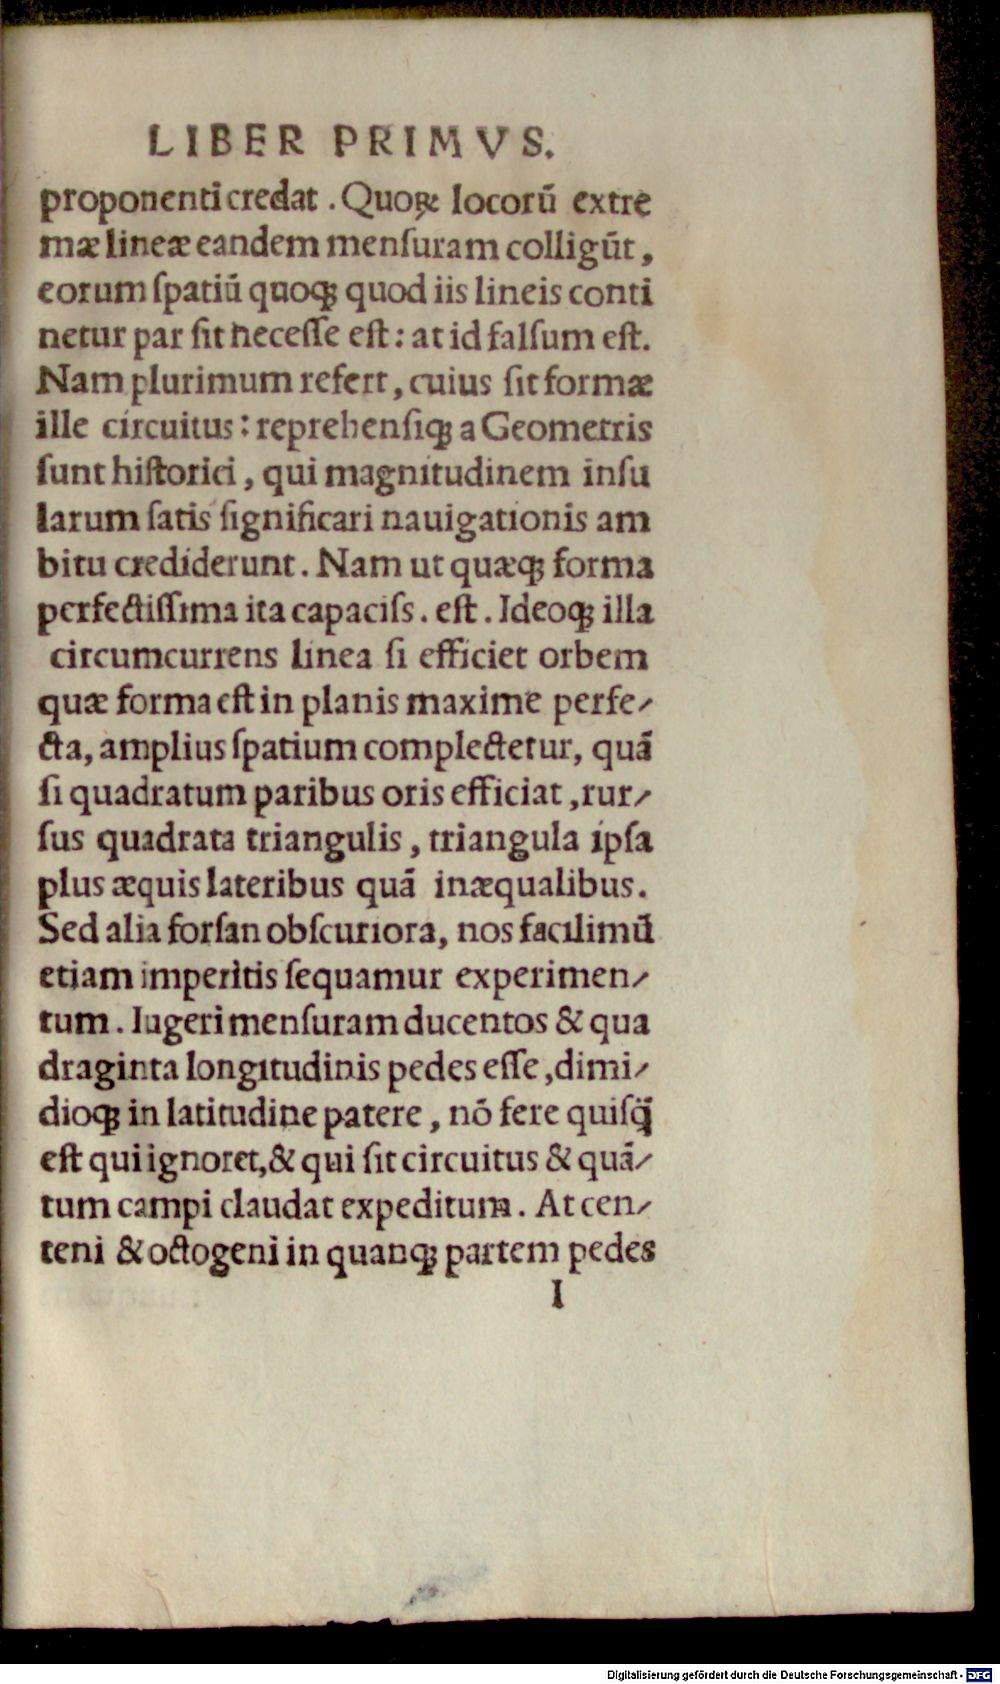 LIBER PRIMVS.
proponenti credat . Quoꝝ locorū extre
mæ lineæ eandem menſuram colligūt ,
eorum ſpatiū quoqꝫ quod iis lineis conti
netur par ſit neceſſe eſt : at id falſum eſt.
Nam plurimum refert , cuius ſit formæ
ille circuitus : reprehenſiqꝫ a Geometris
ſunt hiſtorici , qui magnitudinem inſu
larum ſatis ſignificari nauigationis am
bitu crediderunt . Nam ut quæqꝫ forma
perfectiſſima ita capaciſs . eſt . Ideoqꝫ illa
circumcurrens linea ſi efficiet orbem
quæ forma eſt in planis maxime perfe⸗
cta, amplius ſpatium complectetur, quā
ſi quadratum paribus oris efficiat , rur⸗
ſus quadrata triangulis , triangula ipſa
plus æquis lateribus quā inæqualibus .
Sed alia forſan obſcuriora, nos facilimū
etiam imperitis ſequamur experimen⸗
tum . Iugeri menſuram ducentos & qua
draginta longitudinis pedes eſſe , dimi⸗
dioqꝫ in latitudine patere , nō fere quiſq̄
eſt qui ignoret, & qui ſit circuitus & quā⸗
tum campi claudat expeditum . At cen⸗
teni & octogeni in quanqꝫ partem pedes
I
Digitalisierung gefördert durch die Deutsche Forschungsgemeinschaft - DFG